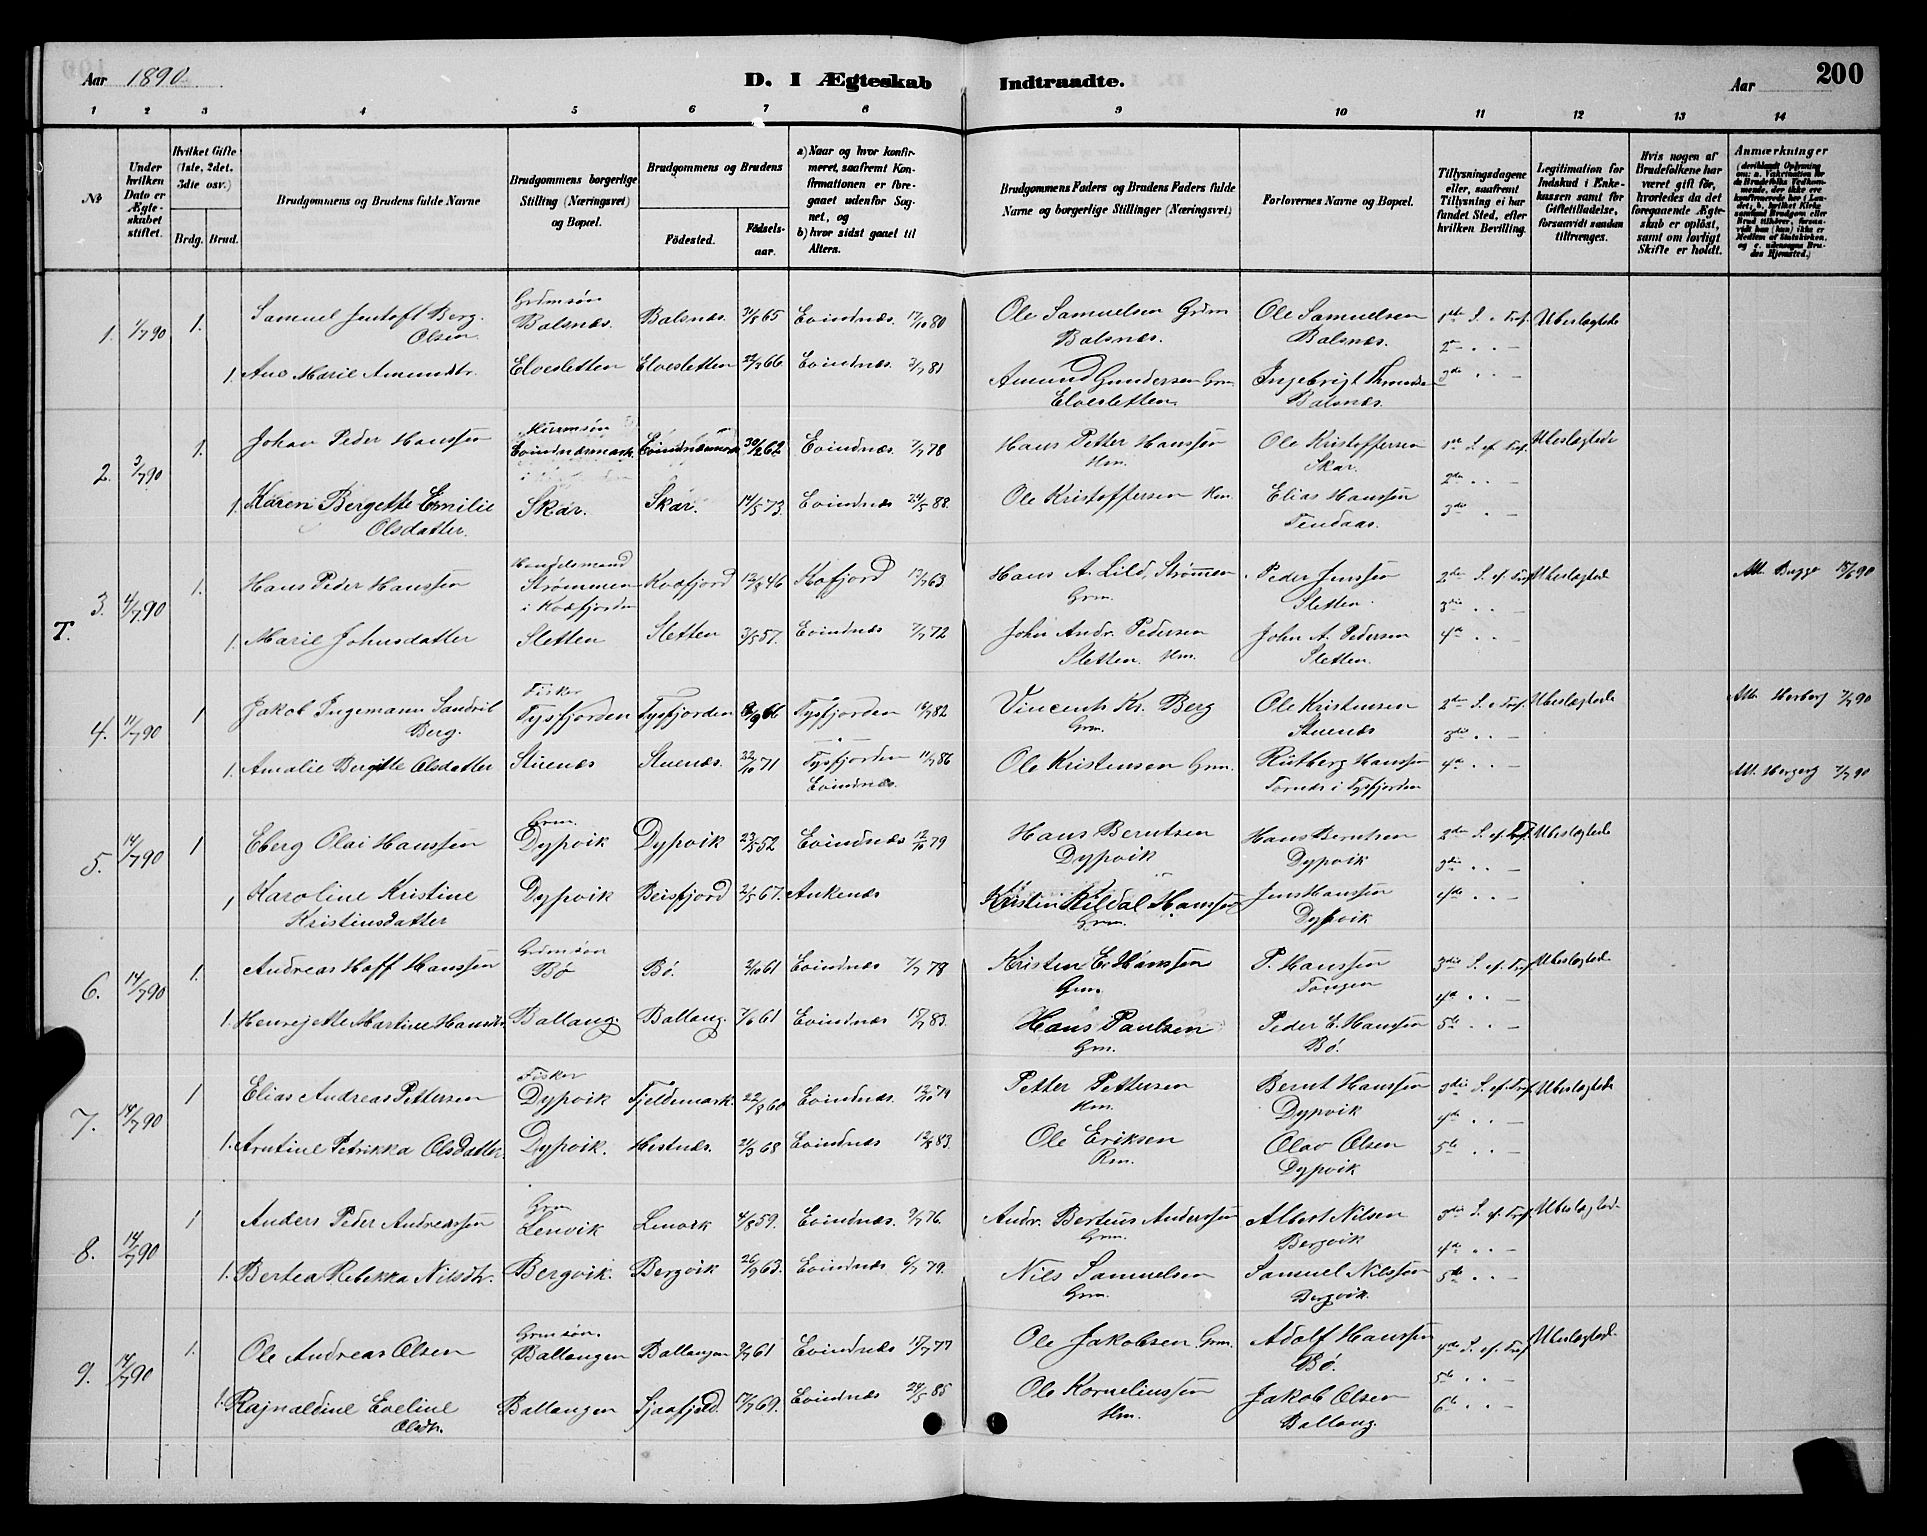 Aar 1890.
D. I Ægteskab Indtraadte.
Aar
200
1 2 3 4 5 6 7 8 9 10 11 12 13 14
No
Under hvilken Dato er Ægteskabet stiftet.
Hvilket Gifte (1ste, 2det, 3die osv.)
Brdg. Brud.
Brudgommens og Brudens fulde Navne
Brudgommens borgerlige Stilling (Næringsvei) og Bopæl.
Brudgommens og Brudens
Fødested.
Fødselsaar.
a) Naar og hvor konfirmeret, saafremt Konfirmationen er foregaaet udenfor Sognet, og
b) hvor sidst gaaet til Alters.
Brudgommens Faders og Brudens Faders fulde Navne og borgerlige Stillinger (Næringsvei)
Forlovernes Navne og Bopæl.
Tillysningsdagene eller, saafremt Tillysning ei har fundet Sted, efter hvilken Bevilling.
Legitimation for Indskud i Enkekassen samt for Giftetilladelse, forsaavidt saadan tiltrænges.
Hvis nogen af Brudefolkene har været gift før, hvorledes da det foregaaende Ægteskab er opløst, samt om lovligt Skifte er holdt.
Anmærkninger
1. 1/7 90 1. Samuel Jentoft Berg Olsen Grdmsøn Balsnæs. Balsnæs. 31/8 65 Evindnæs. 17/10 80 Ole Samuelsen Grdm Balsnæs. Ole Samuelsen Balsnæs. 1ste S. e. Tref. Ubeslægtede
2den " " —
1. Ane Marie Amundsdtr. Elvesletten Elvesletten 22/7 66 Evindnæs. 3/7 81 Amund Gundersen Grm. Elvesletten. Ingebrigt Balsnæs. 3die " " —
2. 3/7 90 1. Johan Peder Hanssen Husmsøn Evindnæsmark. Evindnæsmark 30/12 62 Evindnæs. 7/7 78 Hans Petter Hanssen Hm. Ole Kristoffersen Skar. 1ste S. ef. Tref. Ubeslægtede
2den " " —
1. Karen Bergette Emilie Olsdatter. Skar. Skar. 14/5 73. Evindnæs 24/5 88. Ole Kristoffersen Hm. Elias Hanssen 3die " " —
T. 3. 4/7 90 1. Hans Peder Hanssen Handelsmand Strømmen i Kvæfjorden Kvæfjord 12/8 46 Kvæfjord 12/7 63 Hans A. Lild, Strømmen Grm. Peder Jenssen Sletten. 2den S. ef. Tref. Ubeslægtede Att. Bugge 18/6 90
3die " " —
1. Marie Johnsdatter Sletten Sletten 3/5 57. Evindnæs 7/7 72 John Andr. Pedersen Sletten. Hm. John A. Pedersen Sletten. 4de " " —
4. 11/7 90 1 Jakob Ingemann Sandvik Berg. Fisker Tysfjorden Tysfjorden 66 Tysfjorden 16/7 82 Vincents Kr. Berg Grm. Ole Kristensen Stuenæs 2den S. e. Tref. Ubeslægtede Att. 7/7 90
3die " " —
1. Amalie Bergitte Olsdatter Stuenæs Stuenæs. 22/10 71 Tysfjorden Evindnæs. 11/7 86 Ole Kristensen Grm. Rutberg Hanssen Tornæs i Tysfjorden 4de " " — Att. 7/7 90
5. 14/7 90 1 Eberg Olai Hanssen Grm. Dypvik Dypvik 23/5 52 Evindnæs 12/10 79 Hans Berntsen Dypvik Hans Berntsen Dypvik 2den S. ef. Tref. Ubeslægtede
3die " " —
1 Karoline Kristine Kristiensdatter Dypvik Beisfjord 2/5 67. Ankenæs Kristen Kildal Hanssen Grm. Jens Hanssen Dypvik 4de " " —
6. 14/7 90 1. Andreas Hoff Hanssen Grdmsøn Bø Bø. 2/10 61 Evindnæs 7/7 78 Kristen E. Hanssen Grm. P. Hanssen Tongen 3die S. ef. Tref. Ubeslægtede
4de " " —
1. Henrejette Martine Hansdtr. Ballang. Ballang. 7/6 61 Evindnæs 15/7 83. Hans Paulsen Grm. Peder E. Hanssen Bø. 5te " " —
7. 14/7 90 1 Elias Andreas Pettersen Fisker Dypvik Fjeldemark. 22/8 60 Evindnæs. 12/10 79 Petter Pettersen Hm. Bernt Hanssen Dypvik 3die S. ef. Tref. Ubeslægtede
4de " " —
1. Arntine Petrikka Olsdatter. Dypvik. Hestnæs. 21/3 68 Evindnæs 12/8 83. Ole Eriksen Rm. Olav Olsen Dypvik 5te " " —
8. 14/7 90 1 Anders Peder Andreassen Grm Lenvik Lenvik 4/8 59. Evindnæs. 9/7 76. Andr. Berteus Anderssen Grm. Albert Nilsen Bergvik 3die S. ef. Tref. Ubeslægtede
4de " " —
1. Bertea Rebekka Nilsdtr. Bergvik. Bergvik 26/9 63. Evindnæs 6/7 79. Nils Samuelsen Grm. Samuel Nilssen Bergvik. 5te " " —
9. 14/7 90 1. Ole Andreas Olsen Grmsøn. Ballangen Ballangen 9/7 61 Evindnæs 15/7 77 Ole Jakobsen Grm. Adolf Hanssen Bø. 4de S. ef. Tref. Ubeslægtede
5te " " —
1. Rajnaldine Eveline Olsdtr. Ballangen Sjaafjeld. 17/7 69. Evindnæs 24/5 85 Ole Korneliussen Hm. Jakob Olsen Ballang. 6te " " —